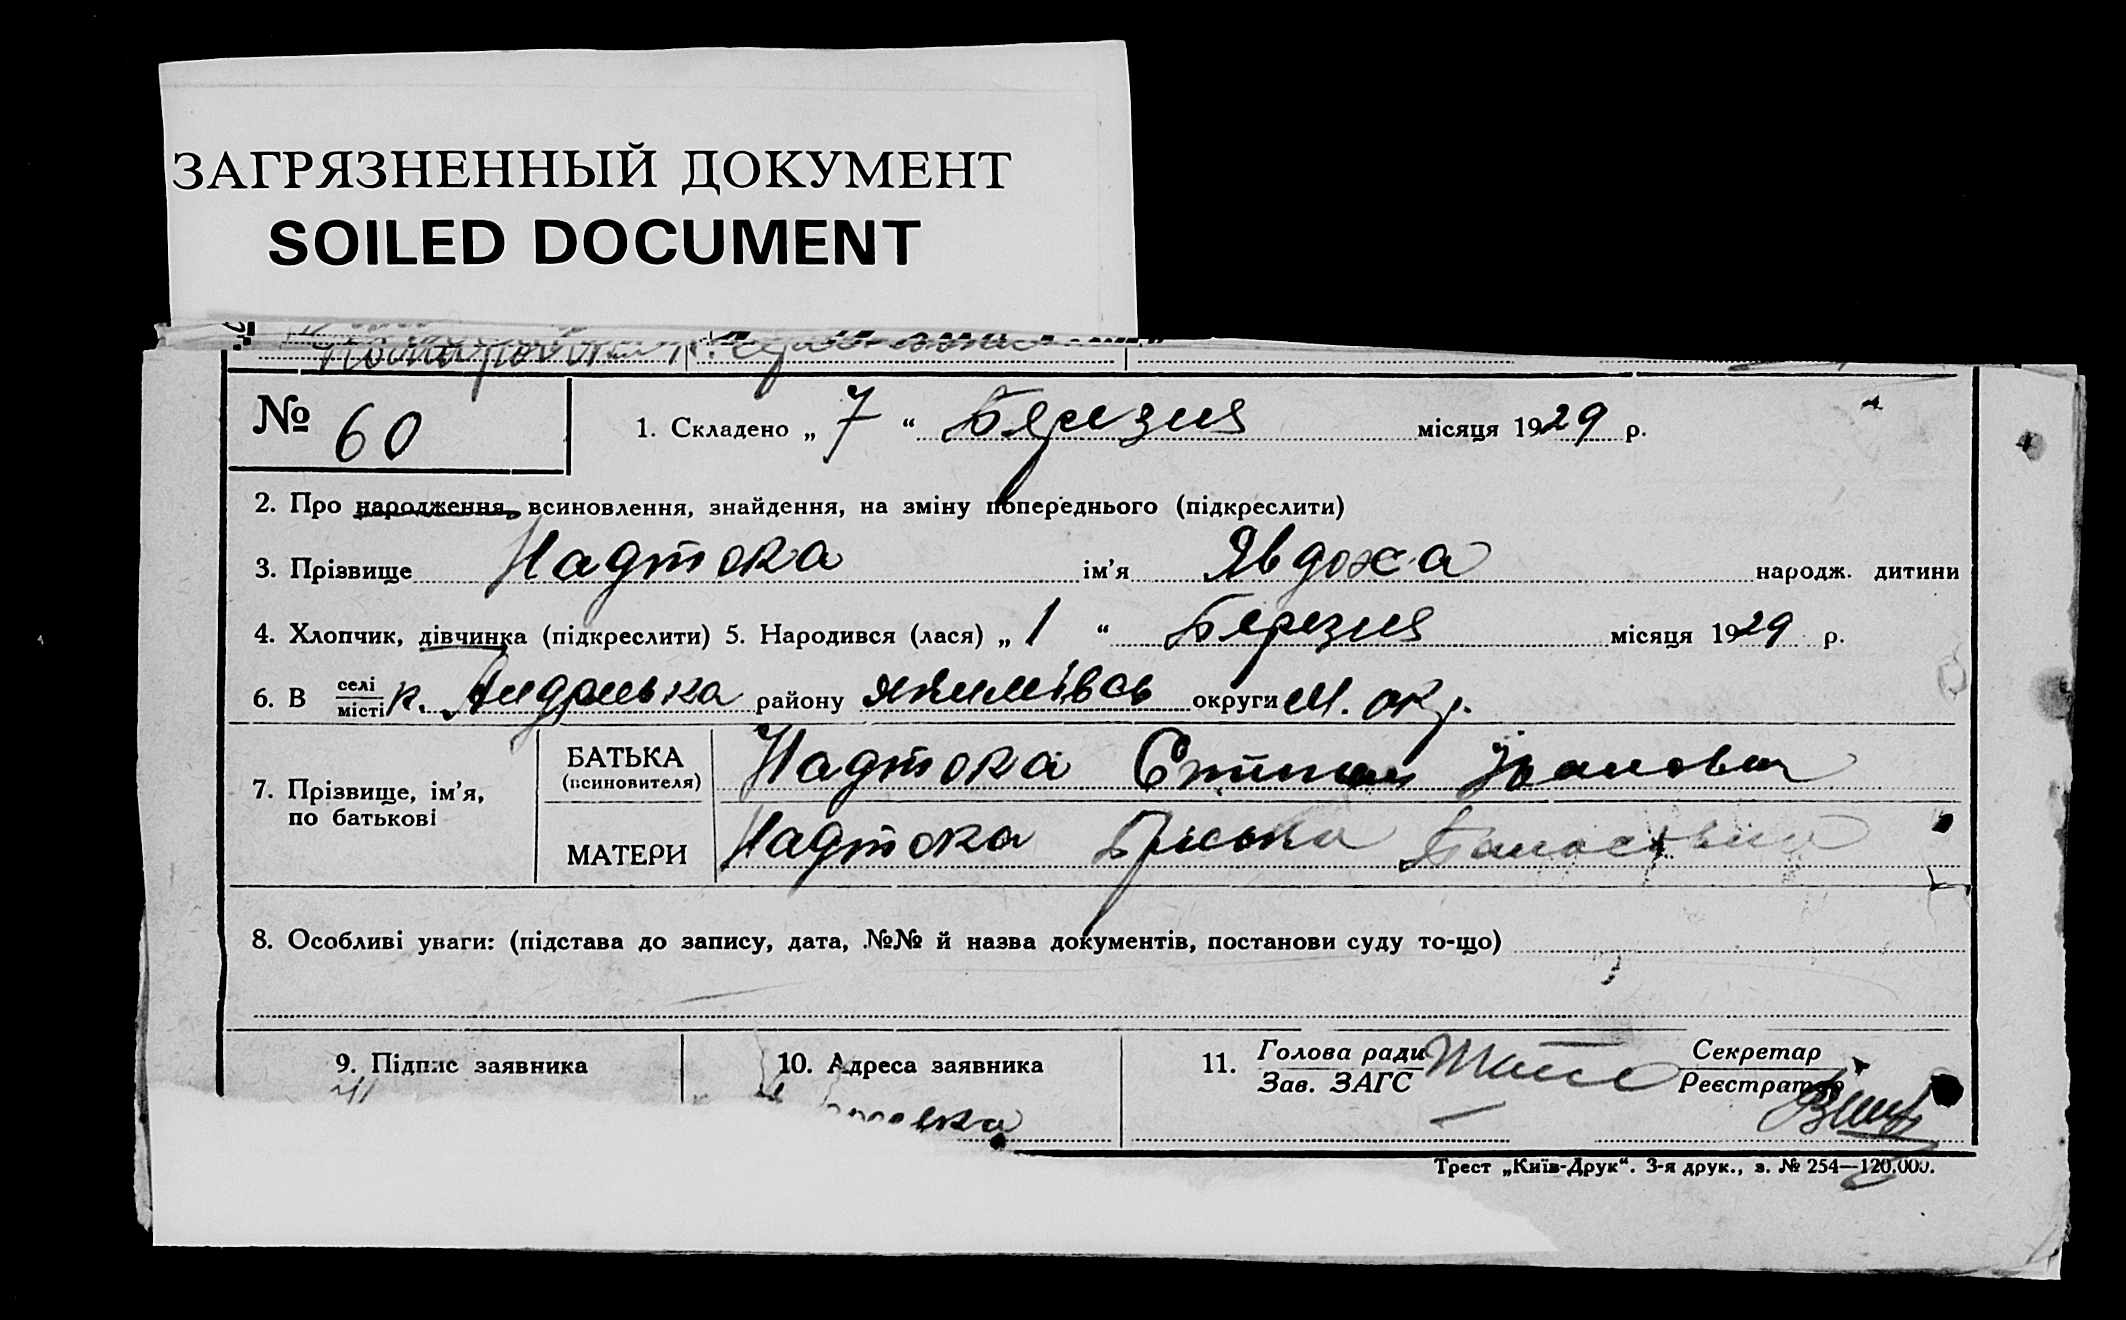 ЗАГРЯЗНЕННЫЙ ДОКУМЕНТ
SOILED DOCUMENT
№ 60
1. Складено „ 7 “ Березня місяця 1929 р.
2. Про народження, всиновлення, знайдення, на зміну попереднього (підкреслити)
3. Прізвище Надтока ім’я Явдоха народж. дитини
4. Хлопчик, дівчинка (підкреслити) 5. Народився (лася) „ 1 “ Березня місяця 1929 р.
6. В селі місті району округи М. окр.
7. Прізвище, ім’я, по батькові
БАТЬКА (всиновителя) Надтока Степан Іванович
МАТЕРИ Надтока
8. Особливі уваги: (підстава до запису, дата, №№ й назва документів, постанови суду то-що)
9. Підпис заявника
10. Адреса заявника
11. Голова ради Зав. ЗАГС
Секретар Реєстратор
Трест „Київ-Друк“. 3-я друк., з. № 254—120.000.